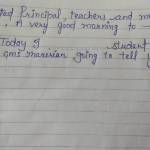 ted Principal, teachers and m
. A very good morning to
Today I student
going to tell